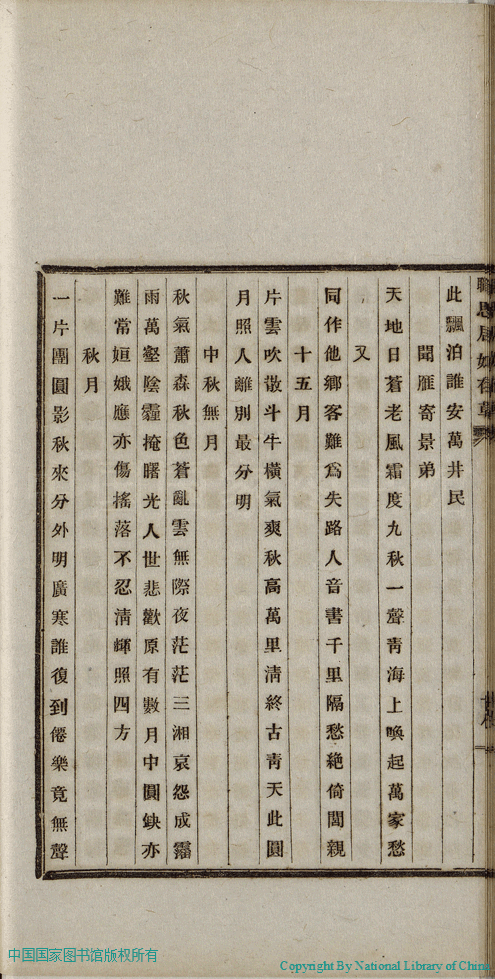 此飄泊誰安萬井民
聞雁寄景弟
天地日蒼老風霜度九秋一聲靑海上喚起萬家愁
又
同作他鄉客難爲失路人音書千里隔愁絕倚閭親
十五月
片雲吹散斗牛橫氣爽秋高萬里淸終古靑天此圓
月照人離別最分明
中秋無月
秋氣蕭森秋色蒼亂雲無際夜茫茫三湘哀怨成霪
雨萬壑陰霾掩曙光人世悲歡原有數月中圓缺亦
難常姮娥應亦傷搖落不忍淸輝照四方
秋月
一片團圓影秋來分外明廣寒誰復到僊樂竟無聲
中国国家图书馆版权所有
Copyright By National Library of China